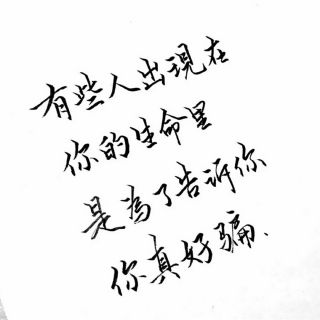 有些人出現在
你的生命里
是為了告訴你
你真好骗、